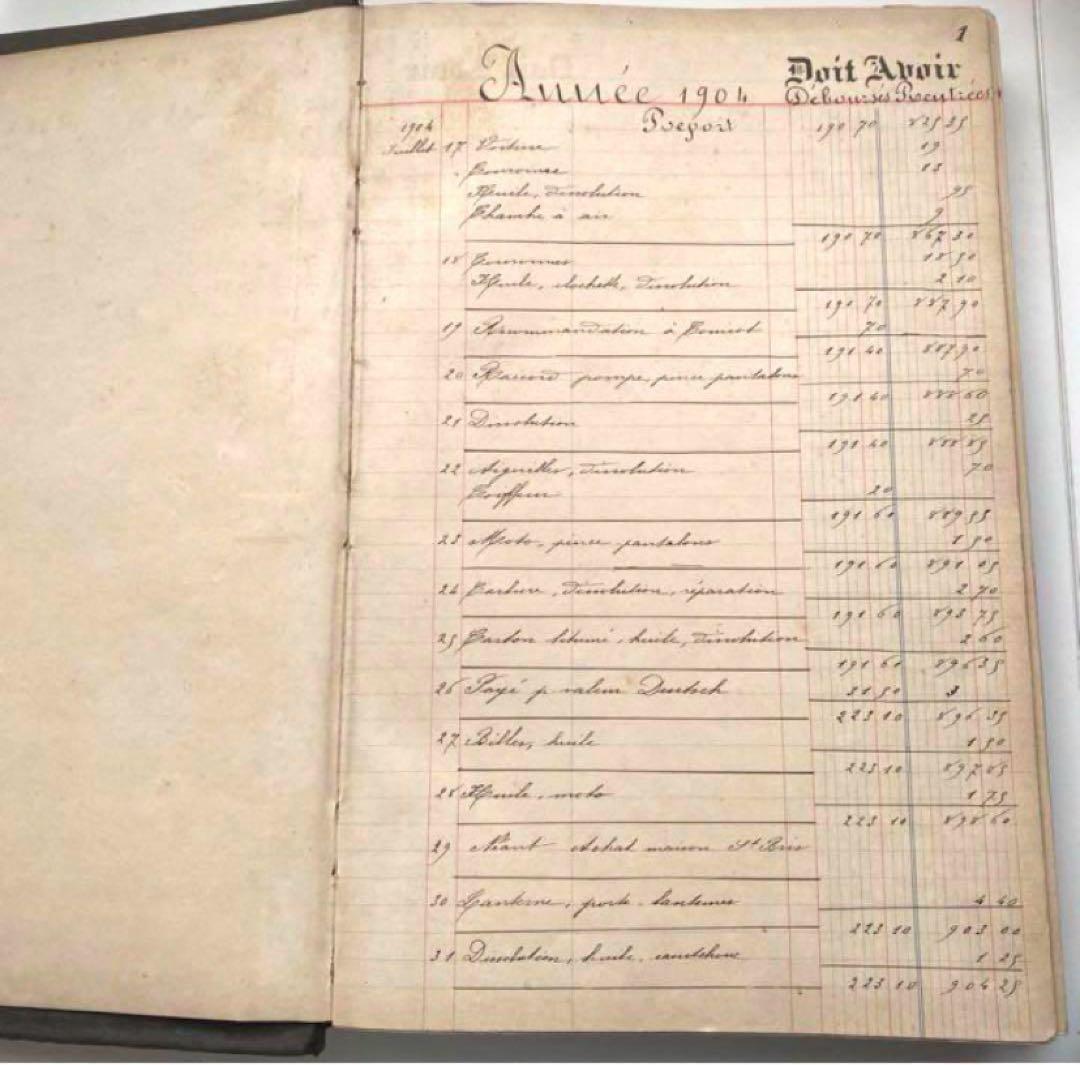 1
Année 1904
Doit Avoir
Débourses Rentrées
Report 190 70 825 35
1904
Juillet 17 Voiture 19
Couronnes 13
Huile, dissolution 95
Chambre à air 9
190 70 867 30
18 Couronnes 18 50
Huile, clochette, dissolution 2 10
190 70 887 90
19 Recommandation à 70
191 40 887 90
20 Raccord pompe, pince pantalons 70
191 40 888 60
21 Dissolution 25
191 40 888 85
22 Aiguilles, dissolution 70
Coiffeur 20
191 60 889 55
23 Moto, pince pantalons 1 50
191 60 891 05
24 Carbure, dissolution, réparation 2 70
191 60 893 75
25 Carton bitumé, huile, dissolution 2 60
191 60 896 35
26 Payé p valeur Deutsch 31 50 3
223 10 896 35
27 Billes, huile 1 50
223 10 897 85
28 Huile, moto 1 75
223 10 898 60
29 Néant Achat maison St Bris
30 Lanterne, porte-lanternes 4 40
223 10 903 00
31 Dissolution, huile, caoutchouc 1 25
223 10 904 25